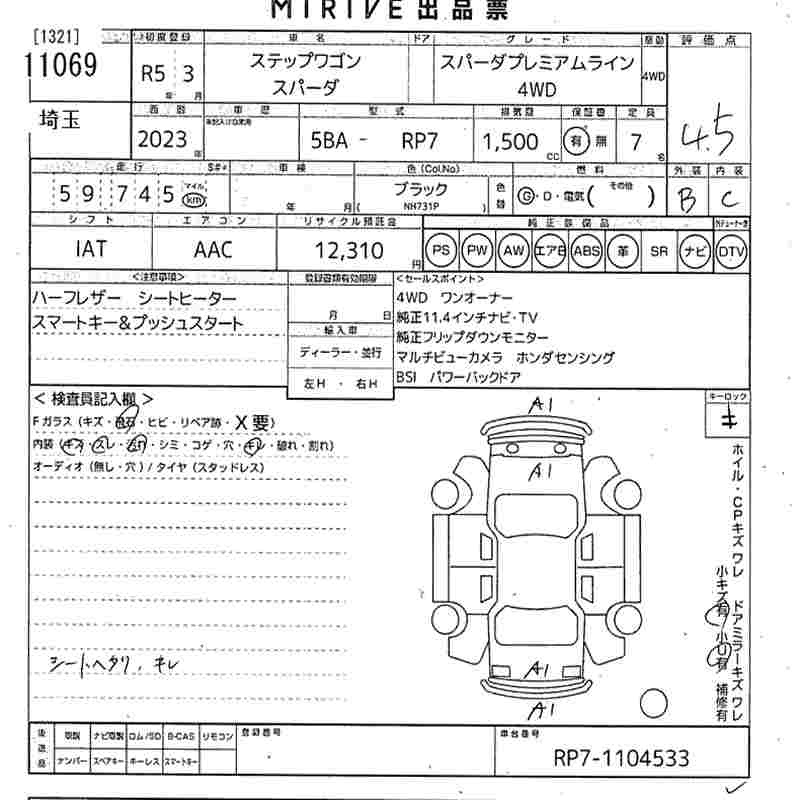 MIRIVE 出品票
[1321]
11069
埼玉
初度登録
車名
ドア
グレード
駆動
評価点
R5 3
年 月
ステップワゴン
スパーダ
スパーダプレミアムライン
4WD
4WD
4.5
西暦
車歴
型式
排気量
保証書
定員
2023
年
5BA - RP7
1,500
CC
有 無
7
名
走行
S#*
車検
色(Col.No)
燃料
外装
内装
59745
マイル
km
年 月
ブラック
( NH731P )
色替
G・D・電気( その他 )
B
C
シフト
エアコン
リサイクル預託金
純正装備品
IAT
AAC
12,310
円
PS PW AW エアB ABS 革 SR ナビ DTV
<注意事項>
登録書類有効期限
<セールスポイント>
ハーフレザー シートヒーター
スマートキー&プッシュスタート
月 日
輸入車
ディーラー・並行
左H ・ 右H
4WD ワンオーナー
純正11.4インチナビ・TV
純正フリップダウンモニター
マルチビューカメラ ホンダセンシング
BSI パワーバックドア
< 検査員記入欄 >
Fガラス (キズ・飛石・ヒビ・リペア跡・X要)
内装 (キズ・スレ・汚れ・シミ・コゲ・穴・キレ・破れ・割れ)
オーディオ (無し・穴) / タイヤ (スタッドレス)
シートヘタリ、キレ
A1
A1
A1
A1
キーロック
キ
ホイル・CPキズワレ ドアミラーキズワレ
小キズ有 小U有 補修有
後送品
取説 ナビ取説 ロム/SD B-CAS リモコン
ナンバー スペアキー ホーレス スマートキー
登録番号
車台番号
RP7-1104533